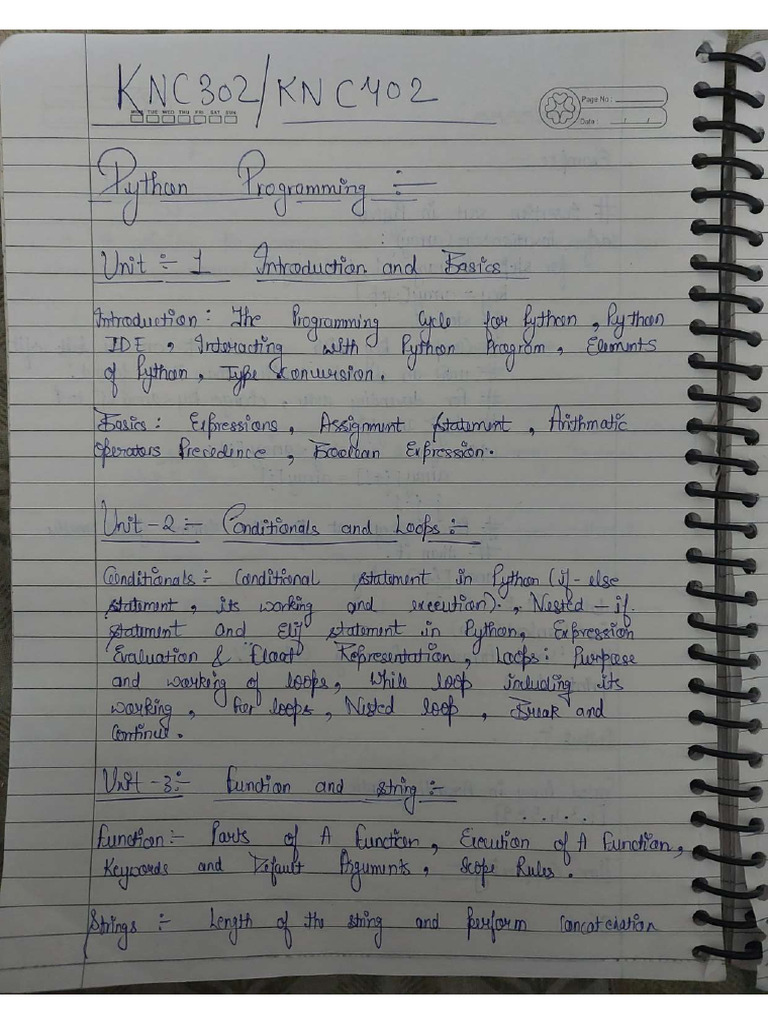 KNC302/KNC402
MON TUE WED THU FRI SAT SUN
Page No :
Date : / /
Python Programming :-
Unit :- 1 Introduction and Basics
Introduction : The Programming Cycle for Python , Python
IDE , Interacting with Python Program , Elements
of Python , Type Conversion .
Basics : Expressions , Assignment statement , Arithmatic
Operators Precedence , Boolean Expression .
Unit - 2 :- Conditionals and Loops :-
Conditionals :- Conditional statement in Python (if - else
statement , its working and execution) . , Nested - if
statement and Elif statement in Python, Expression
Evaluation & Float Representation , Loops : Purpose
and working of loops , While loop including its
working , For loops , Nested loop , Break and
Continue .
Unit - 3 :- Function and string :-
Function :- Parts of A Function , Execution of A Function ,
Keywords and Default Arguments , Scope Rules .
Strings :- Length of the string and perform